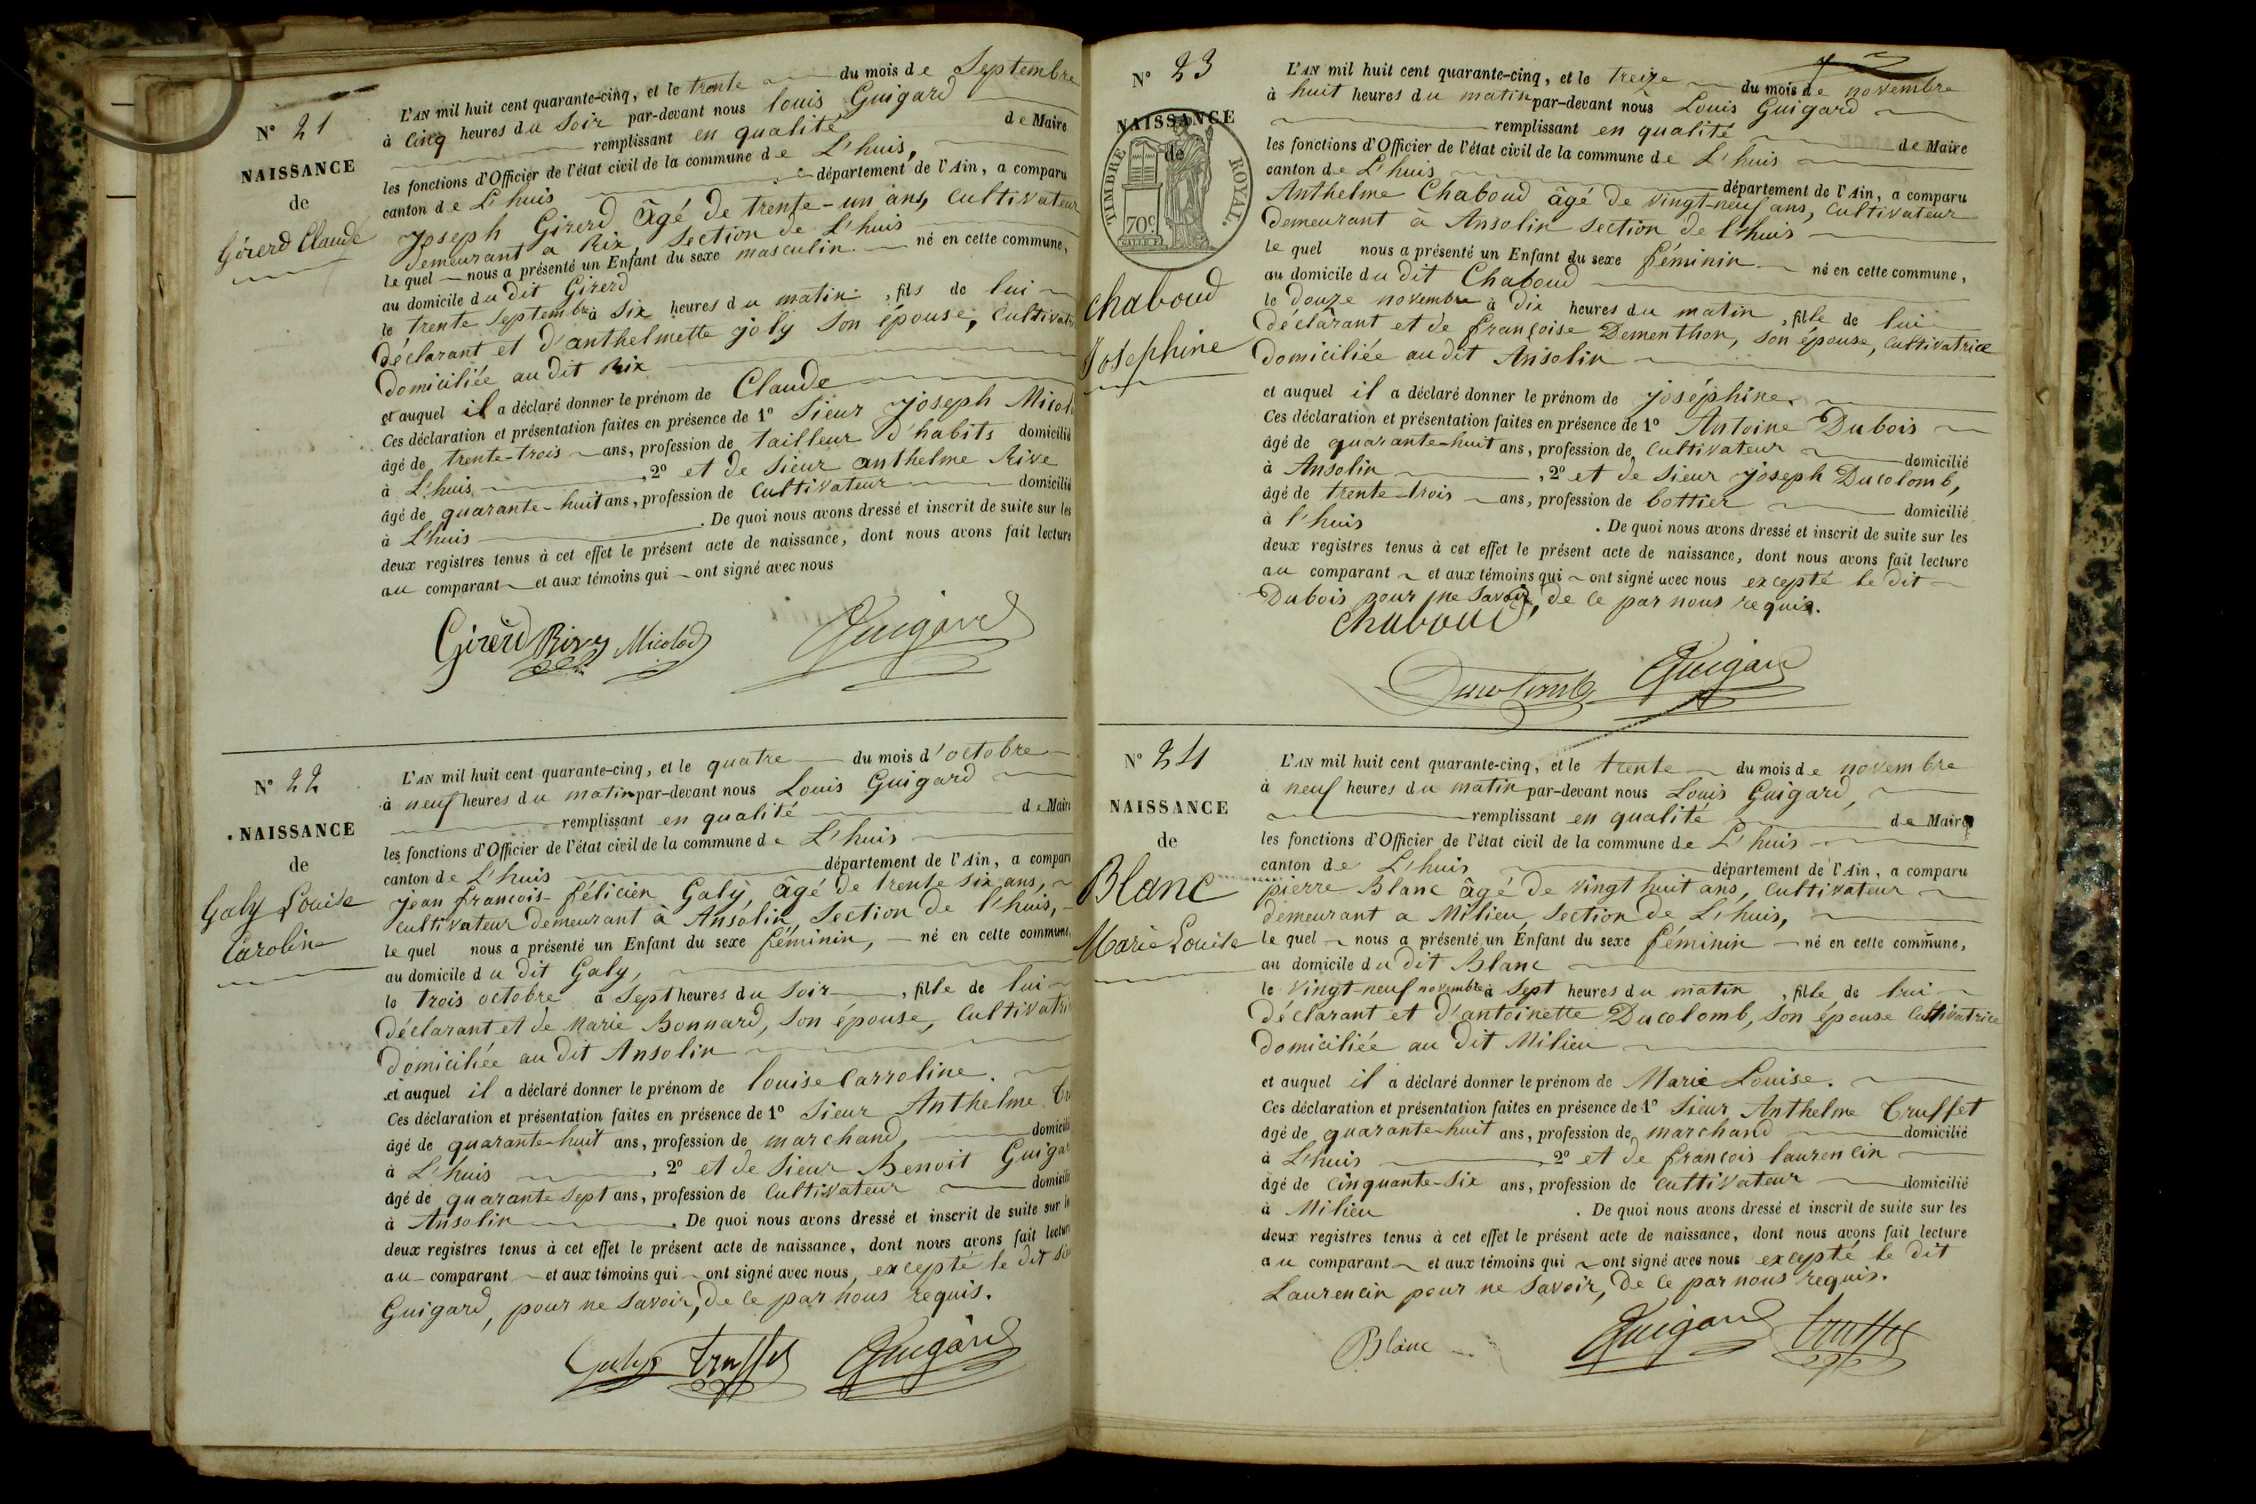 N° 21
NAISSANCE
de
Girerd Claude
L'AN mil huit cent quarante-cinq, et le trente du mois de Septembre
à cinq heures du soir par-devant nous louis Guigard
remplissant en qualité de Maire
les fonctions d'Officier de l'état civil de la commune de L'huis,
canton de L'huis département de l'Ain, a comparu
joseph Girerd âgé de trente-un ans, cultivateur
demeurant a Rix, Section de L'huis
le quel nous a présenté un Enfant du sexe masculin né en cette commune,
au domicile du dit Girerd
le trente septembre à six heures du matin, fils de lui
déclarant et d'anthelmette joly son épouse,
domiciliée au dit Rix
et auquel il a déclaré donner le prénom de Claude
Ces déclaration et présentation faites en présence de 1° Sieur joseph
âgé de trente-trois ans, profession de tailleur d'habits domicilié
à L'huis, 2° et de Sieur anthelme Rive
âgé de quarante-huit ans, profession de cultivateur domicilié
à L'huis. De quoi nous avons dressé et inscrit de suite sur les
deux registres tenus à cet effet le présent acte de naissance, dont nous avons fait lecture
au comparant et aux témoins qui ont signé avec nous
Girerd Rive Micolod Guigard
N° 22
NAISSANCE
de
Galy Louise
Caroline
L'AN mil huit cent quarante-cinq, et le quatre du mois d'octobre
à neuf heures du matin par-devant nous Louis Guigard
remplissant en qualité de Maire
les fonctions d'Officier de l'état civil de la commune de L'huis
canton de L'huis département de l'Ain, a comparu
jean françois-félicien Galy, âgé de trente six ans,
cultivateur demeurant à Ansolin, Section de l'huis,
le quel nous a présenté un Enfant du sexe féminin, né en cette commune,
au domicile du dit Galy,
le trois octobre à sept heures du soir, fille de lui
déclarant et de Marie Bonnard, son épouse,
domiciliée au dit Ansolin
et auquel il a déclaré donner le prénom de louise Carroline.
Ces déclaration et présentation faites en présence de 1° Sieur Anthelme
âgé de quarante-huit ans, profession de marchand, domicilié
à L'huis, 2° et de Sieur Benoit
âgé de quarante sept ans, profession de cultivateur domicilié
à Ansolin. De quoi nous avons dressé et inscrit de suite sur les
deux registres tenus à cet effet le présent acte de naissance, dont nous avons fait lecture
au comparant et aux témoins qui ont signé avec nous, excepté le dit
Guigard, pour ne savoir, de ce par nous requis.
Galy Truffet Guigard
N° 23
NAISSANCE
de
TIMBRE ROYAL.
70c
chaboud
Josephine
L'AN mil huit cent quarante-cinq, et le treize du mois de novembre
à huit heures du matin par-devant nous Louis Guigard
remplissant en qualité de Maire
les fonctions d'Officier de l'état civil de la commune de L'huis
canton de L'huis département de l'Ain, a comparu
Anthelme Chaboud âgé de vingt-neuf ans, cultivateur
demeurant à Ansolin section de l'huis
le quel nous a présenté un Enfant du sexe féminin né en cette commune,
au domicile du dit Chaboud
le douze novembre à dix heures du matin, fille de lui
déclarant et de françoise Dementhon, son épouse, cultivatrice
domiciliée au dit Ansolin
et auquel il a déclaré donner le prénom de joséphine.
Ces déclaration et présentation faites en présence de 1° Antoine Dubois
âgé de quarante-huit ans, profession de cultivateur domicilié
à Ansolin, 2° et de Sieur joseph Ducolomb,
âgé de trente-trois ans, profession de bottier domicilié
à l'huis. De quoi nous avons dressé et inscrit de suite sur les
deux registres tenus à cet effet le présent acte de naissance, dont nous avons fait lecture
au comparant et aux témoins qui ont signé avec nous excepté le dit
Dubois pour ne savoir, de ce par nous requis.
chaboud
Ducolomb Guigard
N° 24
NAISSANCE
de
Blanc
Marie Louise
L'AN mil huit cent quarante-cinq, et le trente du mois de novembre
à neuf heures du matin par-devant nous Louis Guigard,
remplissant en qualité de Maire
les fonctions d'Officier de l'état civil de la commune de L'huis
canton de L'huis département de l'Ain, a comparu
pierre Blanc âgé de vingt huit ans, cultivateur
demeurant a Milieu, section de L'huis,
le quel nous a présenté un Enfant du sexe féminin né en cette commune,
au domicile du dit Blanc
le vingt-neuf novembre à sept heures du matin, fille de lui
déclarant et d'antoinette Ducolomb, son épouse cultivatrice
domiciliée au dit Milieu
et auquel il a déclaré donner le prénom de Marie Louise.
Ces déclaration et présentation faites en présence de 1° Sieur Anthelme Truffet
âgé de quarante-huit ans, profession de marchand domicilié
à L'huis, 2° et de françois laurencin
âgé de cinquante-six ans, profession de cultivateur domicilié
à Milieu. De quoi nous avons dressé et inscrit de suite sur les
deux registres tenus à cet effet le présent acte de naissance, dont nous avons fait lecture
au comparant et aux témoins qui ont signé avec nous excepté le dit
Laurencin pour ne savoir, de ce par nous requis.
Blanc Guigard Truffet